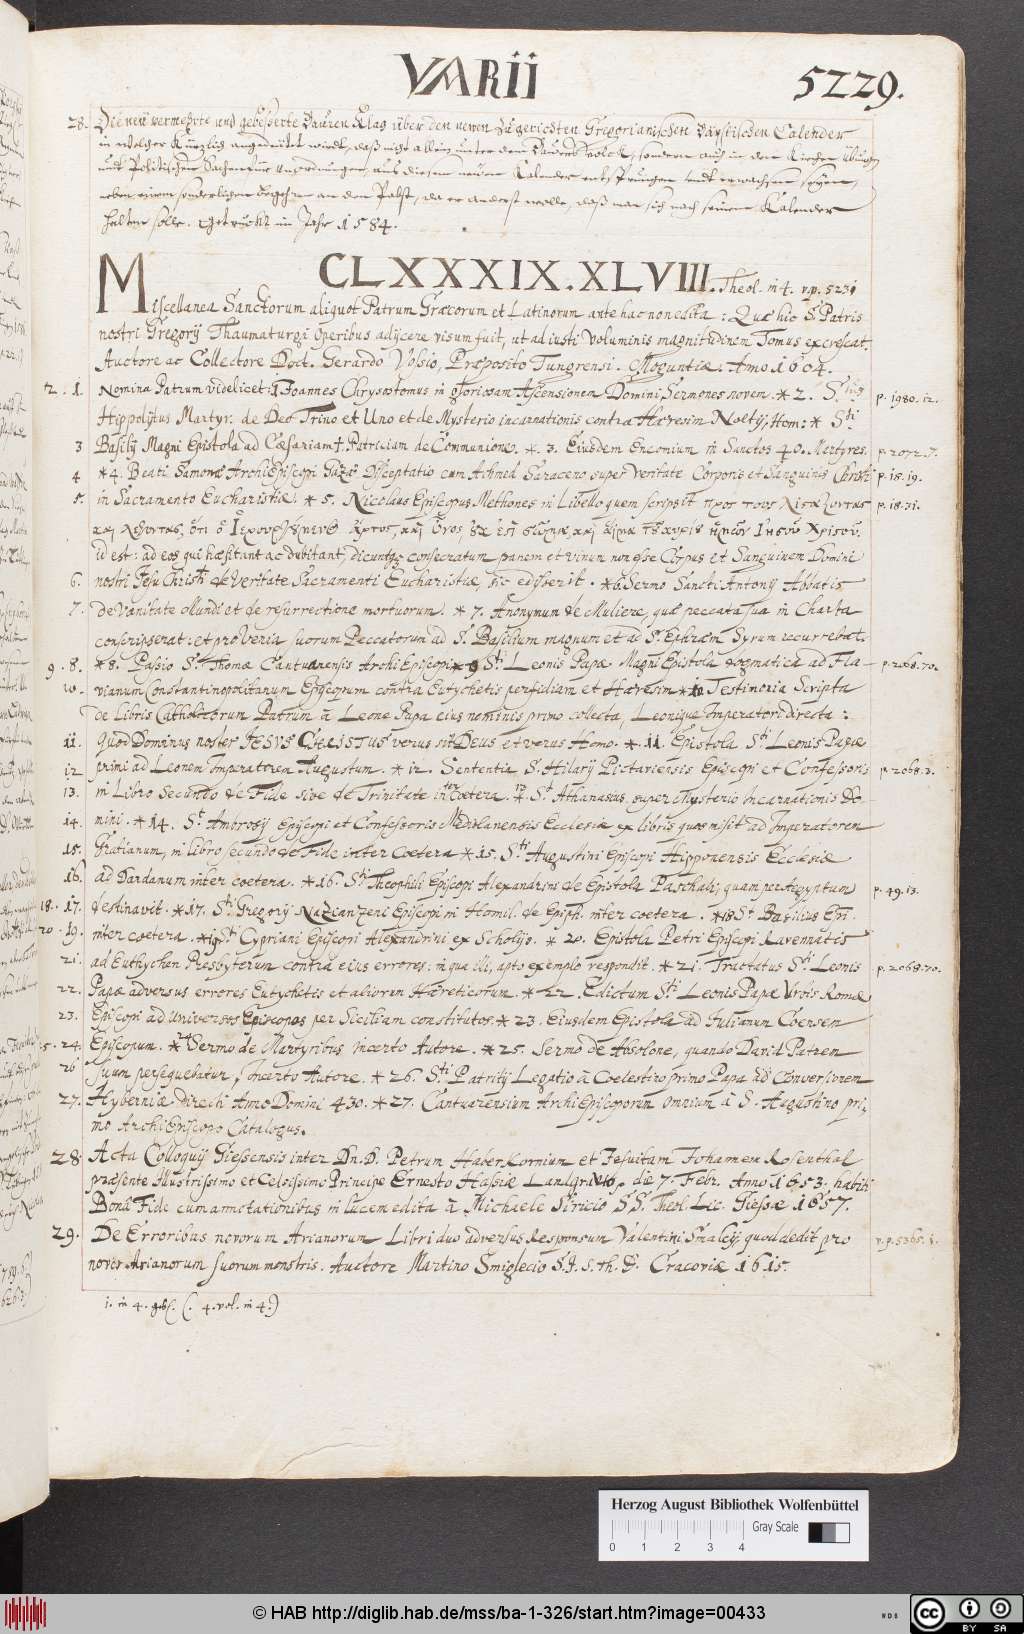 VARII
5229.
28. Die neü vermehrte und gebesserte Bauren Klag über den newen zugerichten Gregorianischen Bäpstischen Calender
in welcher Kürzlich angedeütet wirdt, daß nicht allein unter dem Bauers volck, sondern auch in den Kirchen übungen
undt Politischen Sachen für unordnungen, aus diesem neüen Kalender entsprungen undt erwachsen seyen,
neben einem sonderlichen begehren an den Pabst, da er anderst wolle, daß man sich nach seinem Kalender
halten solle. Getrückt im Jahr 1584.
CLXXXIX.XLVIII. Theol. in 4. v.p. 5231
Miscellanea Sanctorum aliquot Patrum Græcorum et Latinorum ante hac non edita : Quæ hic S. Patris
nostri Gregorij Thaumaturgi Operibus adijcere visum fuit, ut ad iusti Voluminis magnitudinem Tomus excrescat.
Auctore ac Collectore Doct. Gerardo Vossio, Præposito Tungrensi. Moguntiæ. Anno 1604.
2. 1. Nomina Patrum videlicet: 1 Joannes Chrysostomus in gloriosam Ascensionem Domini Sermones novem. * 2. S. p. 1980. 12.
Hippolytus Martyr. de Deo Trino et Uno et de Mysterio incarnationis contra Hæresim Noëtij, Hom: * Sti
3 Basilij Magni Epistola ad Cæsariam Patriciam de Communione. * 3. Eiusdem Encomium in Sanctos 40. Martyres. p. 2072. 7.
4 * 4. Beati Samonæ ArchiEpiscopi Gazæ Disceptatio cum Achmed Saraceno super Veritate Corporis et Sanguinis Christi p. 18. 19.
5. in Sacramento Eucharistiæ. * 5. Nicolaus Episcopus Methones in Libello quem scripsit προς τους p. 18. 31.
Ιησου Χριστου.
id est: ad eos qui hæsitant ac dubitant, dicuntq; consecratum panem et vinum non esse Corpus et Sanguinem Domini
6. nostri Jesu Christi de Veritate Sacramenti Eucharistiæ, sic edisserit. * 6. Sermo Sancti Antonij Abbatis
7. De Vanitate Mundi et de resurrectione mortuorum. * 7. Anonymum de Muliere, quæ peccata sua in Charta
conscripserat: et pro venia suorum Peccatorum ad S. Basilium magnum et ad S. Ephræm Syrum recurrebat.
9. 8. * 8. Passio S. Thomæ Cantuarensis ArchiEpiscopi * 9 Sti Leonis Papæ Magni Epistola dogmatica ad Fla- p. 2068. 70.
10. vianum Constantinopolitanum Episcopum contra Eutychetis perfidiam et Hæresim * 10 Testimonia Scripta
de Libris Catholicorum Patrum à Leone Papa eius nominis primo collecta, Leonique Imperatori directa :
11. Quod Dominus noster JESVS CHRISTUS verus sit Deus et verus Homo. * 11. Epistola Sti Leonis Papæ
12 primi ad Leonem Imperatorem Augustum. * 12. Sententia S. Hilarij Pictaviensis Episcopi et Confessoris p. 2068. 3.
13. in Libro Secundo de Fide sive de Trinitate inter cœtera. 13 * St Athanasius super Mysterio Incarnationis Do-
14. mini. * 14. St Ambrosij Episcopi et Confessoris Mediolanensis Ecclesiæ ex libris quos misit ad Imperatorem
15. Gratianum, in libro secundo de Fide inter Cœtera * 15. Sti Augustini Episcopi Hipponensis Ecclesiæ
16. ad Dardanum inter cœtera. * 16. Sti Theophili Episcopi Alexandrini de Epistola Paschali, quam per Ægyptum p. 49. 13.
18. 17. destinavit. * 17. Sti Gregorij Nazianzeni Episcopi in Homil. de Epiph. inter cœtera. * 18 St Basilius Epi.
20. 19. inter cœtera. * 19 Sti Cypriani Episcopi Alexandrini ex Scholijs. * 20. Epistola Petri Episcopi Ravennatis
21. ad Euthychen Presbyterum contra eius errores: in qua illi, apto exemplo respondit. * 21. Tractatus Sti Leonis p. 2068. 70.
22. Papæ adversus errores Eutychetis et aliorum Hæreticorum. * 22. Edictum Sti Leonis Papæ Vrbis Romæ
23. Episcopi ad Universos Episcopos per Siciliam constitutos. * 23. Eiusdem Epistola ad Julianum Coensem
5. 24. Episcopum. * 24 Sermo de Martyribus incerto Autore. * 25. Sermo de Absolone, quando David Patrem
26 suum persequebatur, Incerto Autore. * 26. Sti Patritij Legatio à Coelestino primo Papa ad Conversionem
27. Hyberniæ directi Anno Domini 430. * 27. Cantuarensium ArchiEpiscoporum Omnium à S. Augustino pri-
mo ArchiEpiscopo Catalogus.
28 Acta Colloquij Giessensis inter Dn. D. Petrum Haberkornium et Jesuitam Johannem Rosenthal
præsente Illustrissimo et Celsissimo Principe Ernesto Hassiæ Landgravio, die 7. Febr. Anno 1653. habiti
Bona Fide cum annotationibus in lucem edita à Michaele Siricio SS. Theol. Lic. Giessæ 1657.
29. De Erroribus novorum Arianorum Libri duo adversus Responsum Valentini Smalcij quod dedit pro v.p. 5365. 1.
novor. Arianorum suorum monstris. Auctore Martino Smiglecio S.J. S. Th. D. Cracoviæ 1615.
1. in 4. gbl. (. 4. vol. in 4.)
Herzog August Bibliothek Wolfenbüttel
Gray Scale
0 1 2 3 4
© HAB http://diglib.hab.de/mss/ba-1-326/start.htm?image=00433
CC BY SA